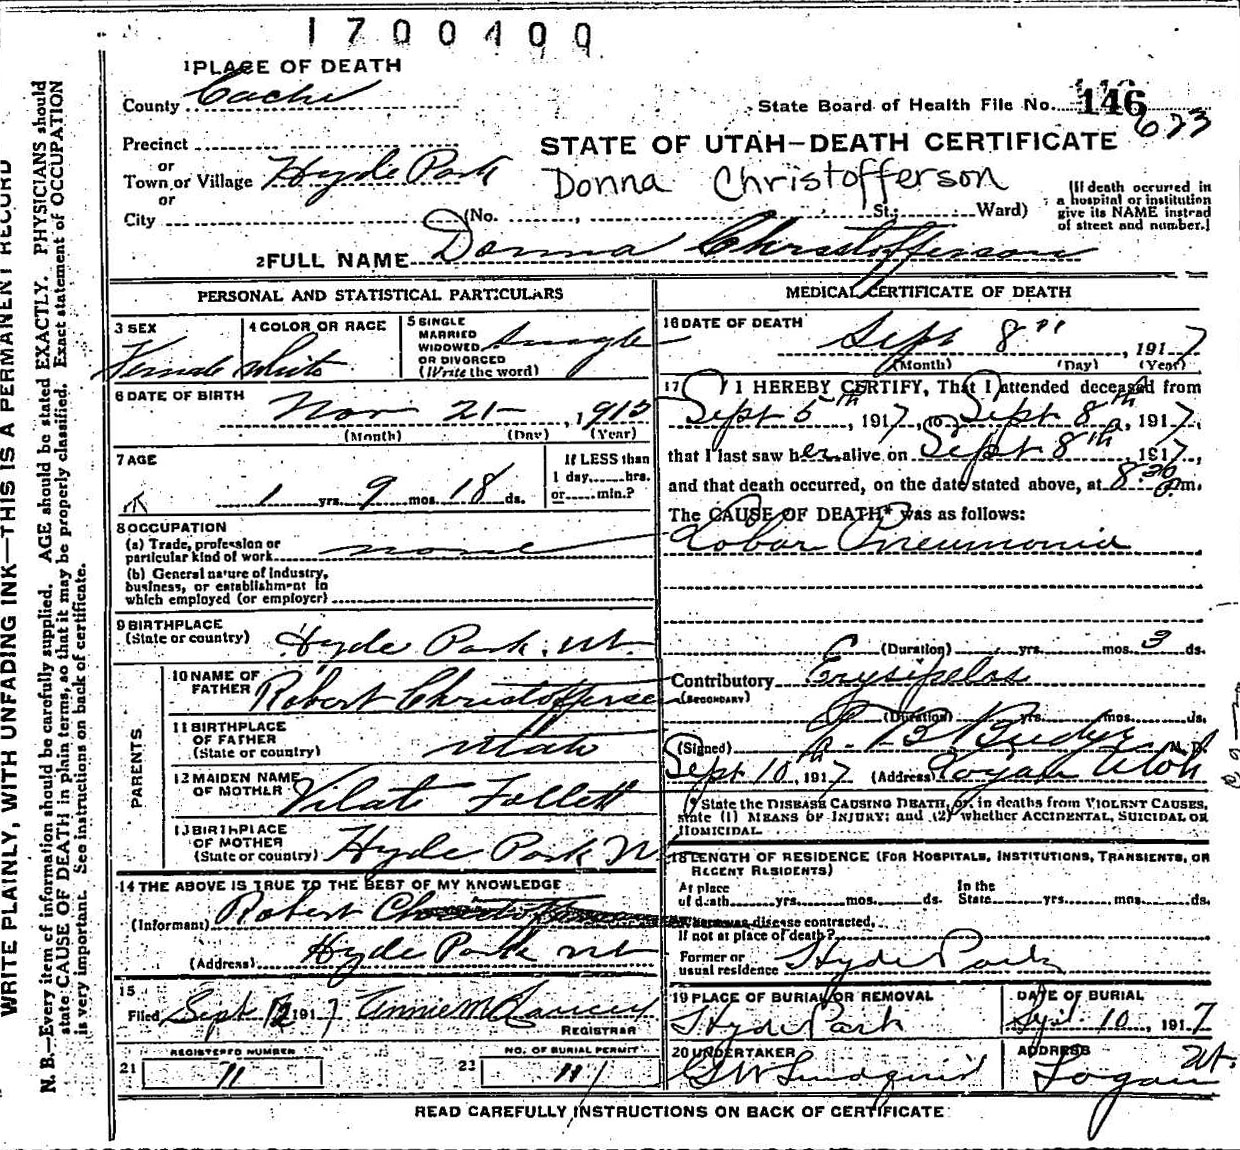 1700400
1 PLACE OF DEATH
County Cache
State Board of Health File No. 146
623
Precinct
or
Town or Village Hyde Park
or
City
STATE OF UTAH—DEATH CERTIFICATE
Donna Christofferson
(No. , St.; Ward)
[If death occurred in
a hospital or institution
give its NAME instead
of street and number.]
2 FULL NAME Donna Christofferson
PERSONAL AND STATISTICAL PARTICULARS
3 SEX
Female
4 COLOR OR RACE
White
5 SINGLE
MARRIED
WIDOWED
OR DIVORCED
(Write the word)
Single
6 DATE OF BIRTH
Nov 21- , 1915
(Month) (Day) (Year)
7 AGE
1 yrs. 9 mos. 18 ds.
If LESS than
1 day, hrs.
or min.?
8 OCCUPATION
(a) Trade, profession or
particular kind of work none
(b) General nature of industry,
business, or establishment in
which employed (or employer)
9 BIRTHPLACE
(State or country) Hyde Park. Ut.
PARENTS
10 NAME OF
FATHER Robert Christofferson
11 BIRTHPLACE
OF FATHER
(State or country) Utah
12 MAIDEN NAME
OF MOTHER Vilate Follett
13 BIRTHPLACE
OF MOTHER
(State or country) Hyde Park Ut
14 THE ABOVE IS TRUE TO THE BEST OF MY KNOWLEDGE
(Informant) Robert Christofferson
(Address) Hyde Park Ut
15
Filed Sept 12 1917 Annie M
REGISTRAR
21 REGISTERED NUMBER
11
22 NO. OF BURIAL PERMIT
11
MEDICAL CERTIFICATE OF DEATH
16 DATE OF DEATH
Sept 8th , 1917
(Month) (Day) (Year)
17 I HEREBY CERTIFY, That I attended deceased from
Sept 5th , 1917, to Sept 8th , 1917,
that I last saw her alive on Sept 8th , 1917,
and that death occurred, on the date stated above, at 8:30 p.m.
The CAUSE OF DEATH* was as follows:
Lobar Pneumonia
(Duration) yrs. mos. 3 ds.
Contributory Erysipelas
(SECONDARY)
(Duration) yrs. mos. ds.
(Signed) Budge M. D.
Sept 10th, 1917 (Address) Logan Utah
* State the DISEASE CAUSING DEATH, or, in deaths from VIOLENT CAUSES,
state (1) MEANS OF INJURY; and (2) whether ACCIDENTAL, SUICIDAL OR
HOMICIDAL.
18 LENGTH OF RESIDENCE (FOR HOSPITALS, INSTITUTIONS, TRANSIENTS, OR
RECENT RESIDENTS)
At place
of death yrs. mos. ds.
In the
State yrs. mos. ds.
Where was disease contracted,
If not at place of death?
Former or
usual residence Hyde Park
19 PLACE OF BURIAL OR REMOVAL
Hyde Park
DATE OF BURIAL
Sept. 10 , 1917
20 UNDERTAKER
G W Lindquist
ADDRESS
Logan Ut.
READ CAREFULLY INSTRUCTIONS ON BACK OF CERTIFICATE
WRITE PLAINLY, WITH UNFADING INK—THIS IS A PERMANENT RECORD
N. B.—Every item of information should be carefully supplied. AGE should be stated EXACTLY. PHYSICIANS should
state CAUSE OF DEATH in plain terms, so that it may be properly classified. Exact statement of OCCUPATION
is very important. See instructions on back of certificate.